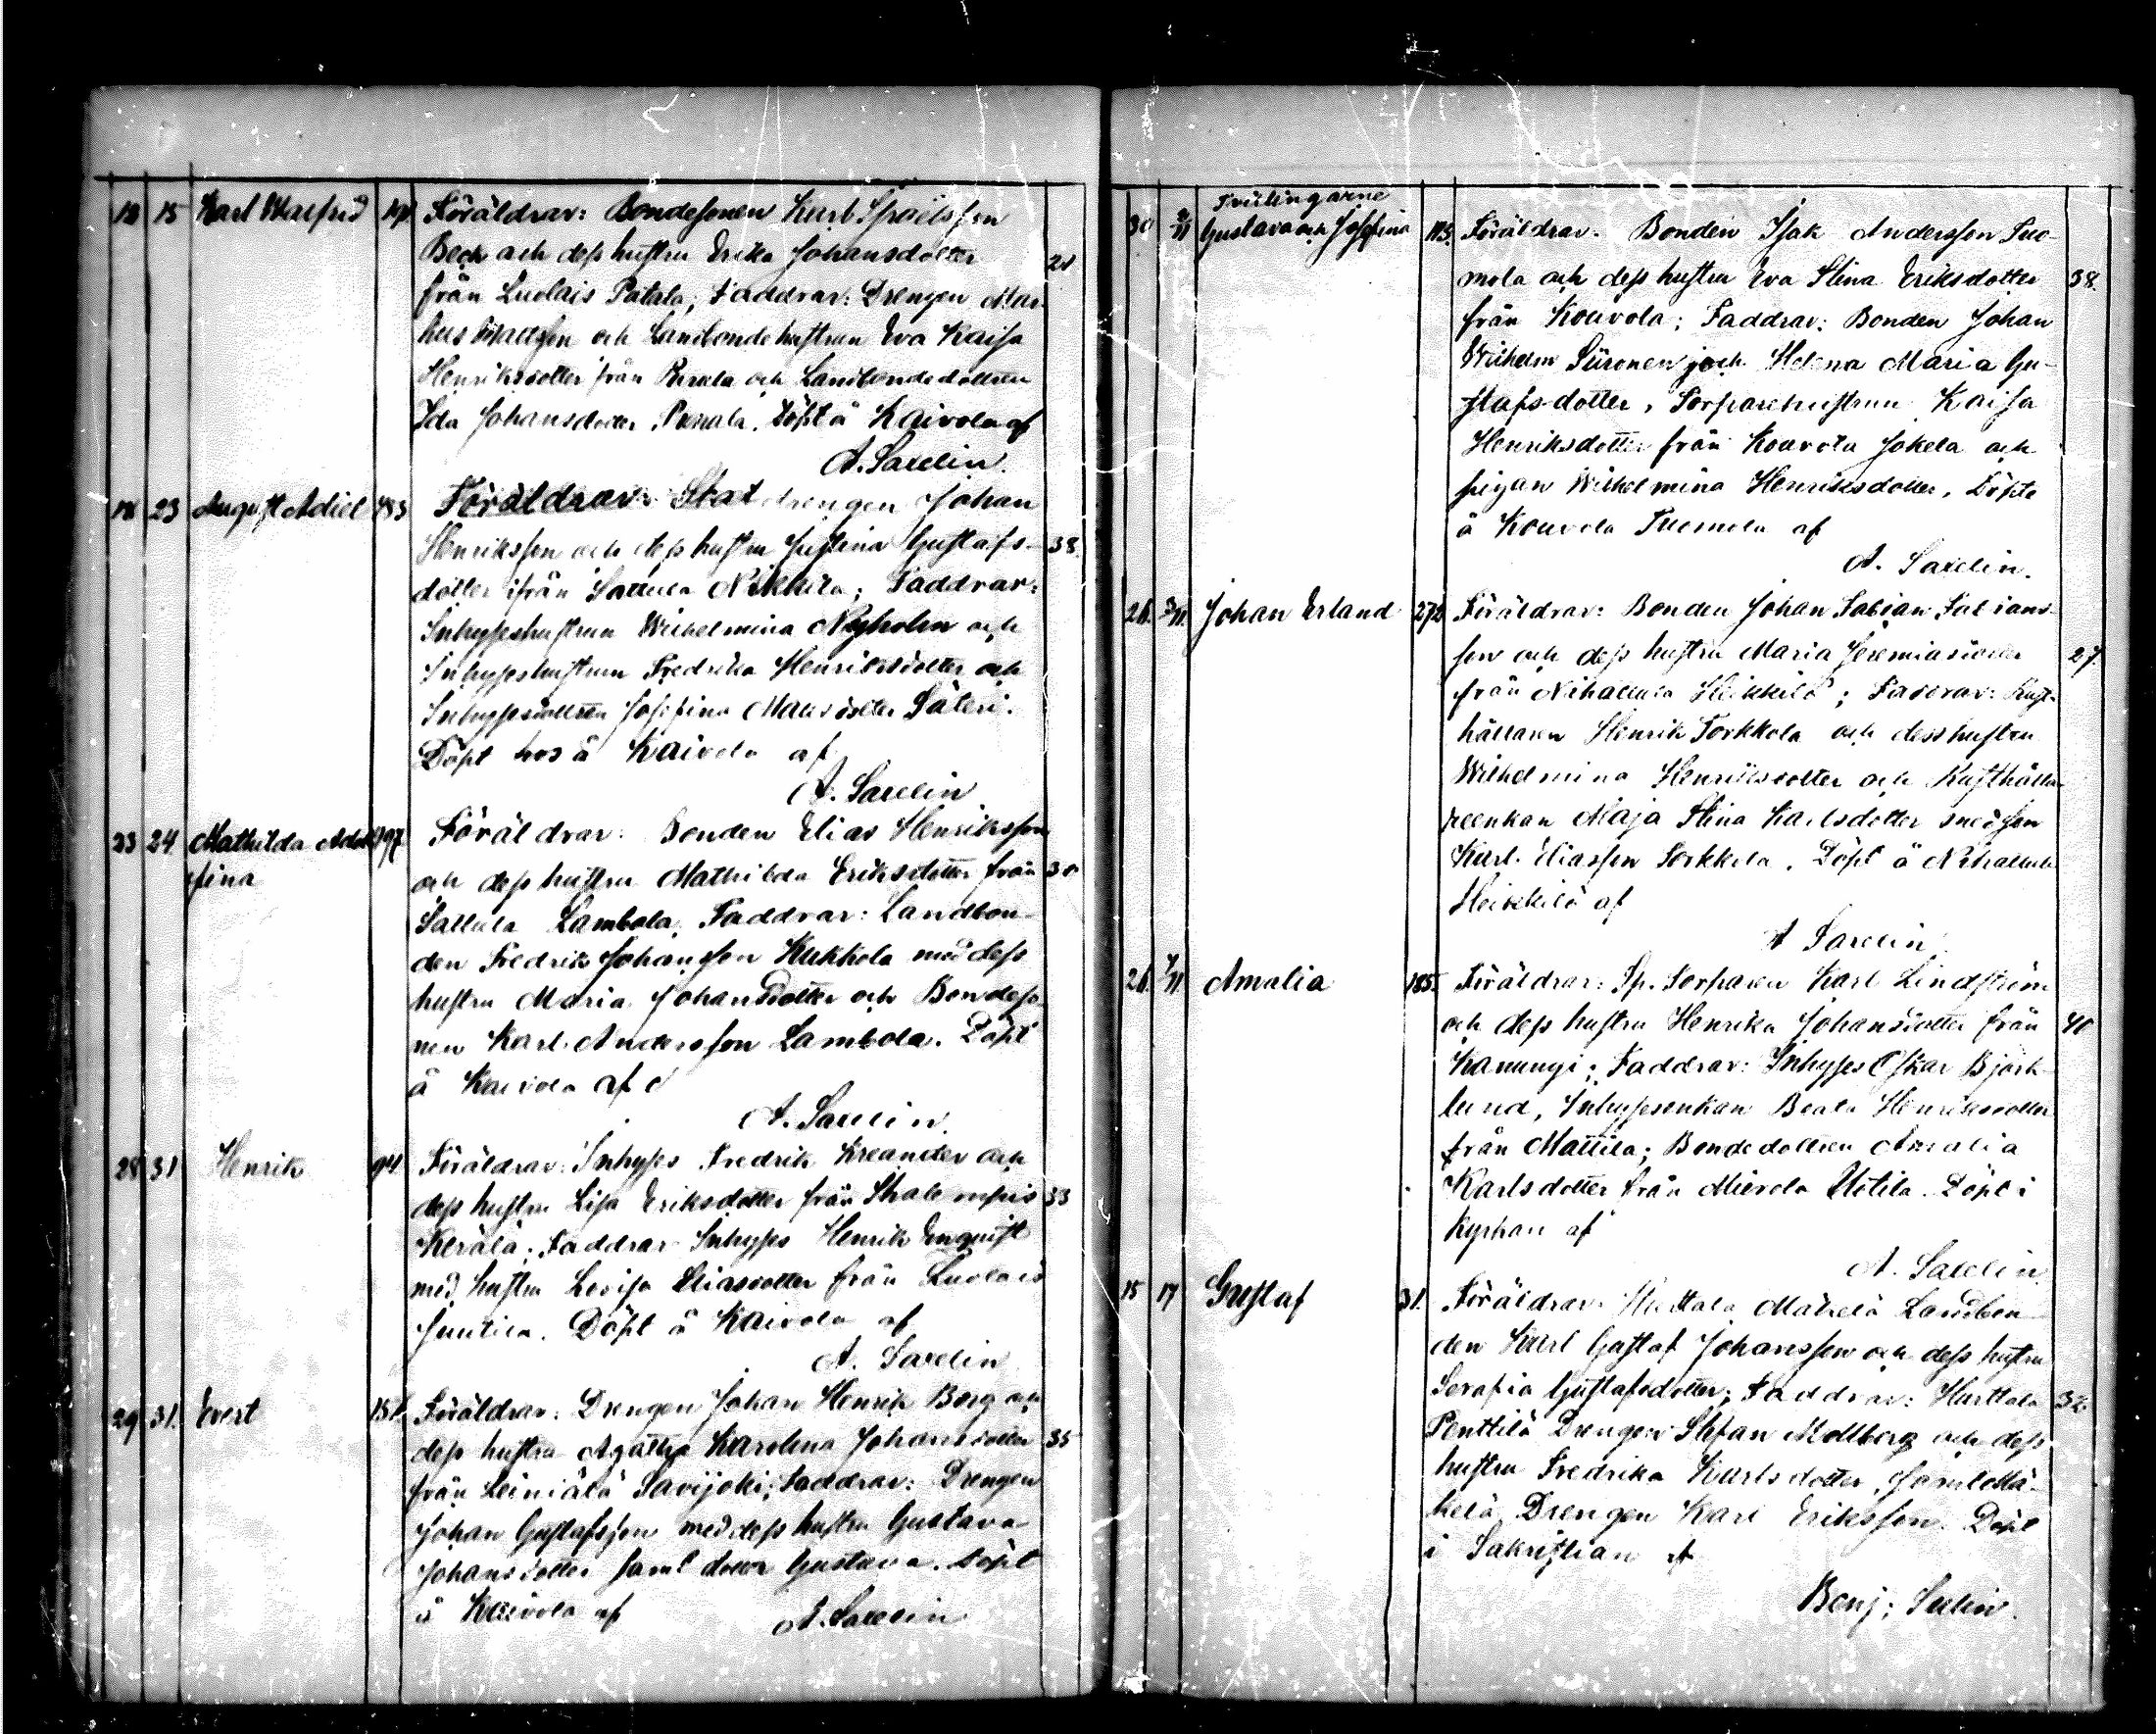 12 15 Karl Walfrid Föräldrar: Bondesonen Karl Israelsson
Beck och dess hustru Erika Johansdotter
21
från Luolais Patala; Faddrar: Drengen Mar-
kus Mattsson och Landbondehustrun Eva Kaisa
Henriksdotter från Perala och Landbondedottren
Ida Johansdotter Perala. Döpt å Kaivola af
A. Sarelin.
18 23 August Adiel 483 Föräldrar: Statdrengen Johan
Henriksson och dess hustru Justina Gustafs- 38.
dotter ifrån Sattula Nikkila; Faddrar:
Inhyseshustrun Wilhelmina Nyholm och
Inhyseshustrun Fredrika Henriksdotter och
Inhysesdottren Josefina Matsdotter Säteri.
Döpt hos å Kaivola af
A. Sarelin
23 24 Mathilda Adol 197 Föräldrar: Bonden Elias Henriksson
fina och dess hustru Mathilda Eriksdotter från 30
Sattula Lambola. Faddrar: Landbon-
den Fredrik Johansson Kukkola med dess
hustru Maria Johansdotter och Bondeso-
nen Karl Andersson Lambola. Döpt
å Kaivola af
A. Sarelin.
28 31 Henrik 94 Föräldrar: Inhyses Fredrik Kreander och
dess hustru Lisa Eriksdotter från 33
Kerälä; Faddrar Inhyses Henrik Enqvist
med hustru Lovisa Eliasdotter från Luolais
Juntila. Döpt å Kaivola af
A. Sarelin
29 31. Evert 151 Föräldrar: Drengen Johan Henrik Borg och
dess hustru Agatha Karolina Johansdotter 35
från Leiniälä Savijoki; Faddrar: Drengen
Johan Gustafsson med dess hustru Gustava
Johansdotter saml dotter Gustava. Döpt
å Kaivola af A. Sarelin
Tvillingarne
30 2/11 Gustava och Josefina 113. Föräldrar: Bonden Isak Andersson Tuo-
mola och dess hustru Eva Stina Eriksdotter 38.
från Kouvola; Faddrar: Bonden Johan
Wilhelm Siironen och Helena Maria Gu-
stafsdotter, Torparehustrun Kaisa
Henriksdotter från Kouvola Jokela och
pigan Wilhelmina Henriksdotter. Döpte
å Kouvola Tuomola af
A. Sarelin.
26. 3/11. Johan Erland 272 Föräldrar: Bonden Johan Fabian Fabians-
son och dess hustru Maria Jeremiasdotter 27.
från Nihattula Heikkilä; Faddrar: Rust-
hållaren Henrik Torkkola och dess hustru
Wilhelmina Henriksdotter och Rusthålla-
reenkan Maja Stina Karlsdotter med son
Karl Eliasson Torkkola. Döpt å Nihattula
Heikkilä af
A Sarelin
26. 7/11. Amalia 185. Föräldrar: Sp. Torparen Karl Lindström
och dess hustru Henrika Johansdotter från 40
Kanungi; Faddrar: Inhyses Oskar Björk-
lund, Inhysesenkan Beata Henriksdotter
från Mattila; Bondedottren Amalia
Karlsdotter från Mierola Uotila. Döpt i
Kyrkan af
A. Sarelin.
15 17 Gustaf 31. Föräldrar: Hurttala Mäkelä Landbon-
den Karl Gustaf Johansson och dess hustru
Serafia Gustafsdotter; Faddrar: Hurttala 32.
Penttilä Drengen Stefan Mollberg och dess
hustru Fredrika Karlsdotter, samt Mä-
kelä Drengen Karl Eriksson. Döpt
i Sakristian af
Benj: Selin.